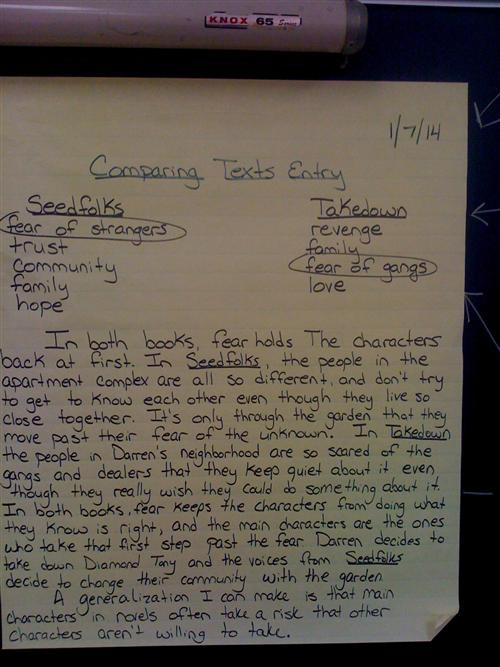 KNOX 65 Series
1/7/14
Comparing Texts Entry
Seedfolks Takedown
fear of strangers revenge
trust family
community fear of gangs
family love
hope
In both books, fear holds The characters
back at first. In Seedfolks, the people in the
apartment complex are all so different, and don't try
to get to know each other even though they live so
close together. It's only through the garden that they
move past their fear of the unknown. In Takedown
the people in Darren's neighborhood are so scared of the
gangs and dealers that they keep quiet about it even
though they really wish they could do something about it.
In both books, fear keeps the characters from doing what
they know is right, and the main characters are the ones
who take that first step past the fear Darren decides to
take down Diamond Tony and the voices from Seedfolks
decide to change their community with the garden
A generalization I can make is that main
characters in novels often take a risk that other
characters aren't willing to take.